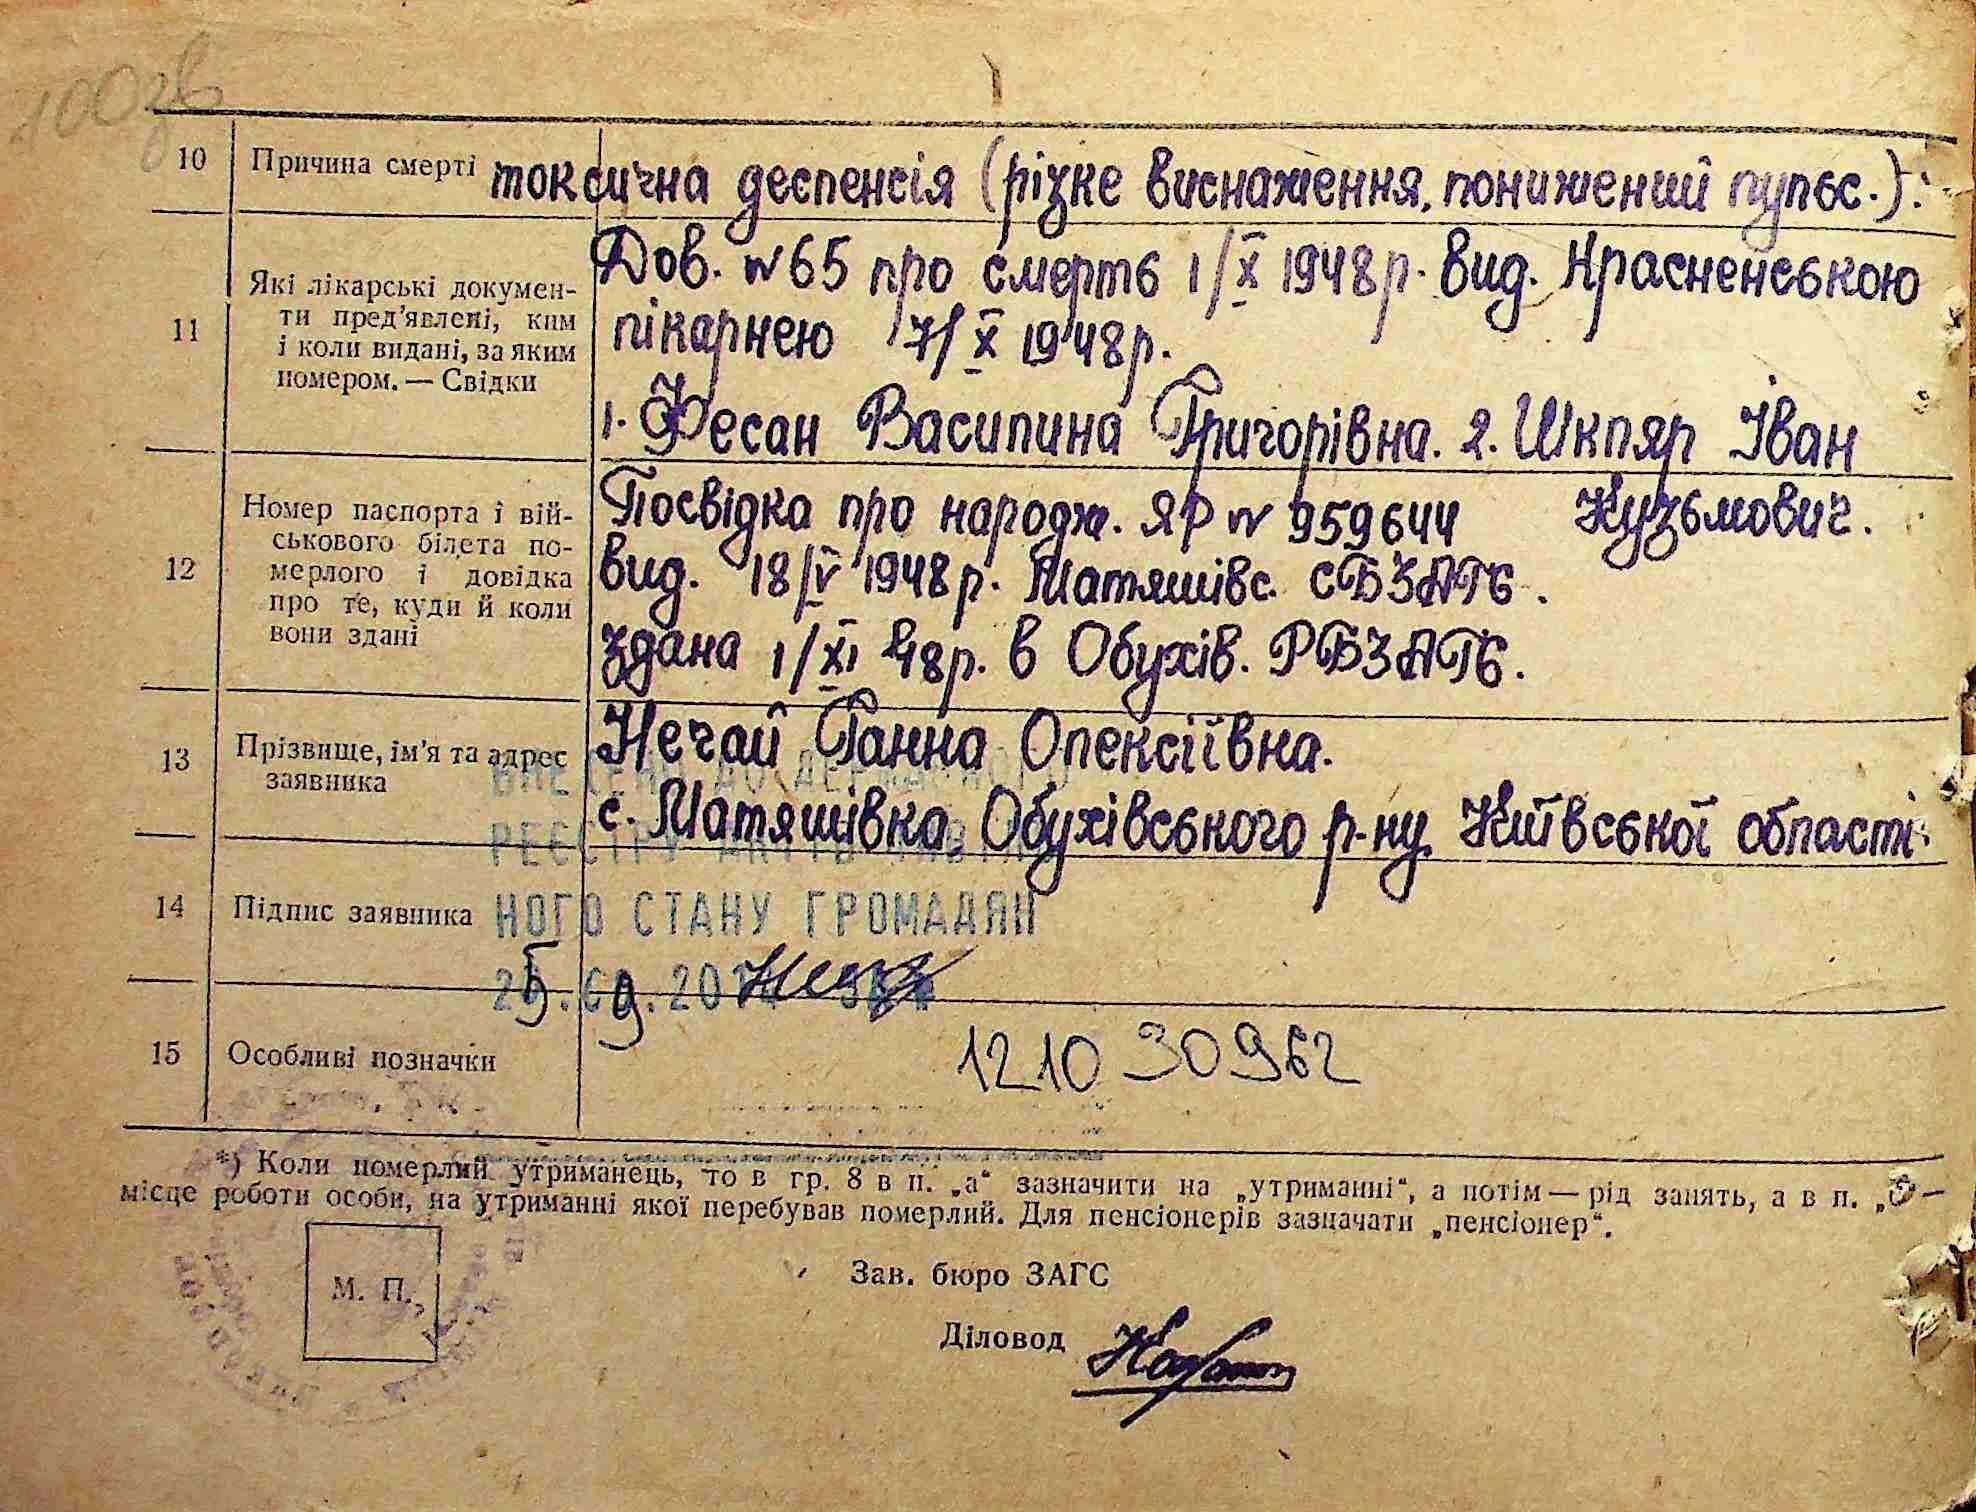 100зв
10 Причина смерті токсична деспенсія (різке виснаження, понижений пульс.).
11 Які лікарські докумен-
ти пред'явлені, ким
і коли видані, за яким
номером. — Свідки
Дов. № 65 про смерть 1/X 1948р. вид. Красненською
лікарнею 7/X 1948р.
1. Фесан Василина Григорівна. 2. Шкляр Іван
Кузьмович.
12 Номер паспорта і вій-
ськового білета по-
мерлого і довідка
про те, куди й коли
вони здані
Посвідка про народж. ЯР № 959644
вид. 18/IV 1948р. Матяшівс. СБЗАГС.
здана 1/XI 48р. в Обухів. РБЗАГС.
13 Прізвище, ім'я та адрес
заявника
Нечай Ганна Олексіївна.
с. Матяшівка, Обухівського р-ну, Київської області.
РЕЄСТРУ АКТІВ
14 Підпис заявника
НОГО СТАНУ ГРОМАДЯН
15 Особливі позначки
1210 30962
*) Коли померлий утриманець, то в гр. 8 в п. „а“ зазначити на „утриманні“, а потім — рід занять, а в п. „б“ —
місце роботи особи, на утриманні якої перебував померлий. Для пенсіонерів зазначати „пенсіонер“.
М. П.
Зав. бюро ЗАГС
Діловод